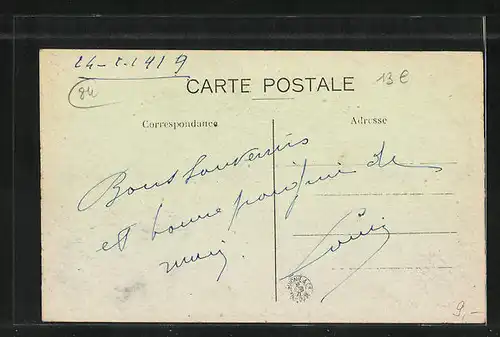 24-8-1919
84
CARTE POSTALE
13€
Correspondance
Adresse
Bons Souvenirs
et bonne poignée de
main.
Louis
9,-